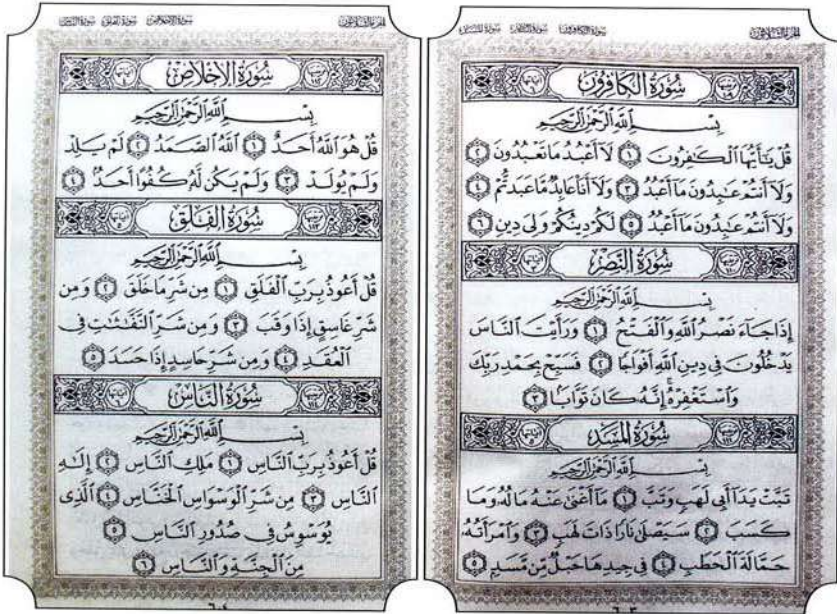 الجزء الثلاثون سورة الكافرون سورة النصر سورة المسد
سُورَةُ الكَافِرُونَ
بِسْمِ ٱللَّهِ ٱلرَّحْمَٰنِ ٱلرَّحِيمِ
قُلْ يَٰٓأَيُّهَا ٱلْكَٰفِرُونَ ١ لَآ أَعْبُدُ مَا تَعْبُدُونَ ٢
وَلَآ أَنتُمْ عَٰبِدُونَ مَآ أَعْبُدُ ٣ وَلَآ أَنَا۠ عَابِدٌ مَّا عَبَدتُّمْ ٤
وَلَآ أَنتُمْ عَٰبِدُونَ مَآ أَعْبُدُ ٥ لَكُمْ دِينُكُمْ وَلِىَ دِينِ ٦
سُورَةُ النَّصْرِ
بِسْمِ ٱللَّهِ ٱلرَّحْمَٰنِ ٱلرَّحِيمِ
إِذَا جَآءَ نَصْرُ ٱللَّهِ وَٱلْفَتْحُ ١ وَرَأَيْتَ ٱلنَّاسَ
يَدْخُلُونَ فِى دِينِ ٱللَّهِ أَفْوَاجًا ٢ فَسَبِّحْ بِحَمْدِ رَبِّكَ
وَٱسْتَغْفِرْهُ إِنَّهُۥ كَانَ تَوَّابًۢا ٣
سُورَةُ المَسَدِ
بِسْمِ ٱللَّهِ ٱلرَّحْمَٰنِ ٱلرَّحِيمِ
تَبَّتْ يَدَآ أَبِى لَهَبٍ وَتَبَّ ١ مَآ أَغْنَىٰ عَنْهُ مَالُهُۥ وَمَا
كَسَبَ ٢ سَيَصْلَىٰ نَارًا ذَاتَ لَهَبٍ ٣ وَٱمْرَأَتُهُۥ
حَمَّالَةَ ٱلْحَطَبِ ٤ فِى جِيدِهَا حَبْلٌ مِّن مَّسَدٍۭ ٥
الجزء الثلاثون سورة الإخلاص سورة الفلق سورة الناس
سُورَةُ الإِخْلَاصِ
بِسْمِ ٱللَّهِ ٱلرَّحْمَٰنِ ٱلرَّحِيمِ
قُلْ هُوَ ٱللَّهُ أَحَدٌ ١ ٱللَّهُ ٱلصَّمَدُ ٢ لَمْ يَلِدْ
وَلَمْ يُولَدْ ٣ وَلَمْ يَكُن لَّهُۥ كُفُوًا أَحَدٌۢ ٤
سُورَةُ الفَلَقِ
بِسْمِ ٱللَّهِ ٱلرَّحْمَٰنِ ٱلرَّحِيمِ
قُلْ أَعُوذُ بِرَبِّ ٱلْفَلَقِ ١ مِن شَرِّ مَا خَلَقَ ٢ وَمِن
شَرِّ غَاسِقٍ إِذَا وَقَبَ ٣ وَمِن شَرِّ ٱلنَّفَّٰثَٰتِ فِى
ٱلْعُقَدِ ٤ وَمِن شَرِّ حَاسِدٍ إِذَا حَسَدَ ٥
سُورَةُ النَّاسِ
بِسْمِ ٱللَّهِ ٱلرَّحْمَٰنِ ٱلرَّحِيمِ
قُلْ أَعُوذُ بِرَبِّ ٱلنَّاسِ ١ مَلِكِ ٱلنَّاسِ ٢ إِلَٰهِ
ٱلنَّاسِ ٣ مِن شَرِّ ٱلْوَسْوَاسِ ٱلْخَنَّاسِ ٤ ٱلَّذِى
يُوَسْوِسُ فِى صُدُورِ ٱلنَّاسِ ٥
مِنَ ٱلْجِنَّةِ وَٱلنَّاسِ ٦